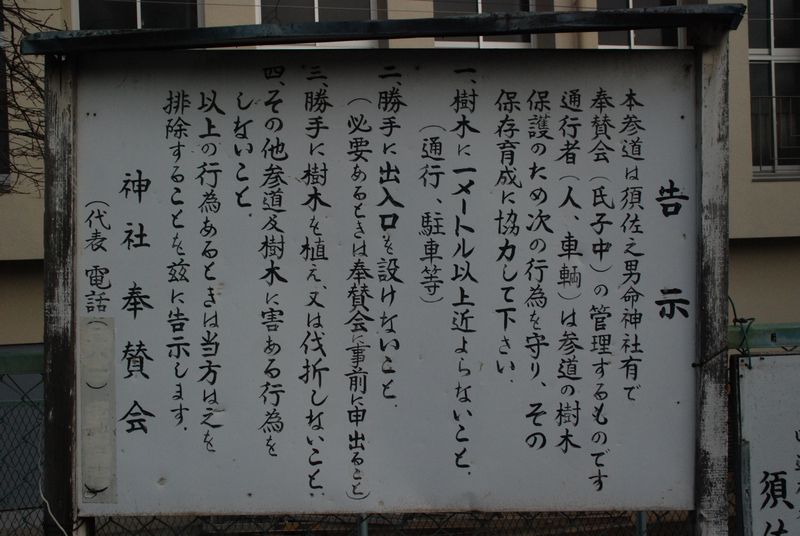 告示
本参道は須佐之男命神社有で
奉賛会(氏子中)の管理するものです
通行者(人、車輌)は参道の樹木
保護のため次の行為を守り、その
保存育成に協力して下さい.
一、樹木に一メートル以上近よらないこと.
(通行、駐車等)
二、勝手に出入口を設けないこと.
(必要あるときは奉賛会に事前に申出ること)
三、勝手に樹木を植え、又は伐折しないこと.
四、その他参道及樹木に害ある行為を
しないこと.
以上の行為あるときは当方は之を
排除することを玆に告示します.
神社奉賛会
(代表 電話(
須佐